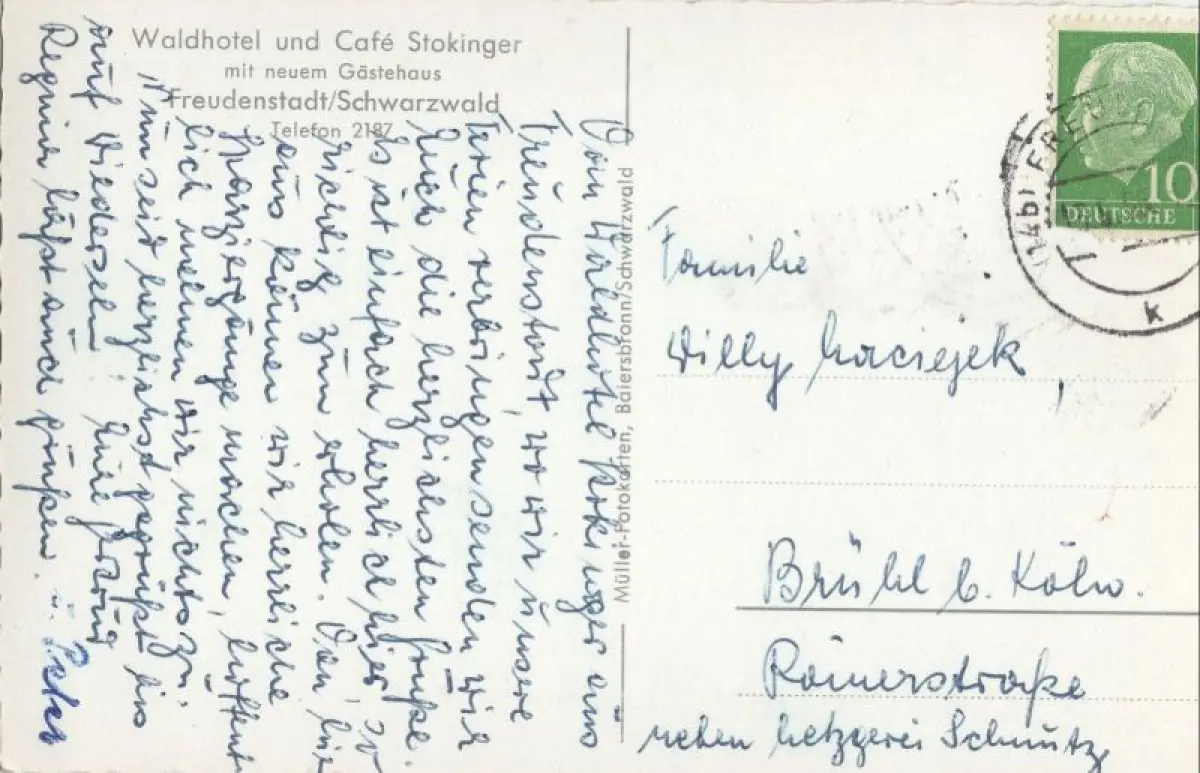 Waldhotel und Café Stokinger
mit neuem Gästehaus
Freudenstadt/Schwarzwald
Telefon 2187
Vom Waldhotel Stokinger aus
Freudenstadt, wo wir unsere
Ferien verbringen senden wir
Euch die herzlichsten Grüße.
Es ist einfach herrlich hier, so
richtig zum erholen. Von hier
aus können wir herrliche
Spaziergänge machen, hoffent
lich nehmen wir nichts zu.
Nun seid herzlichst gegrüßt bis
auf Wiedersehn! Eure
Regina läßt auch grüßen. u. Peter
Müller-Fotokarten, Baiersbronn/Schwarzwald
10
DEUTSCHE
(14b) FREUD
k
Familie
Willy Maciejek,
Brühl b. Köln.
Römerstraße
neben Metzgerei Schmutz